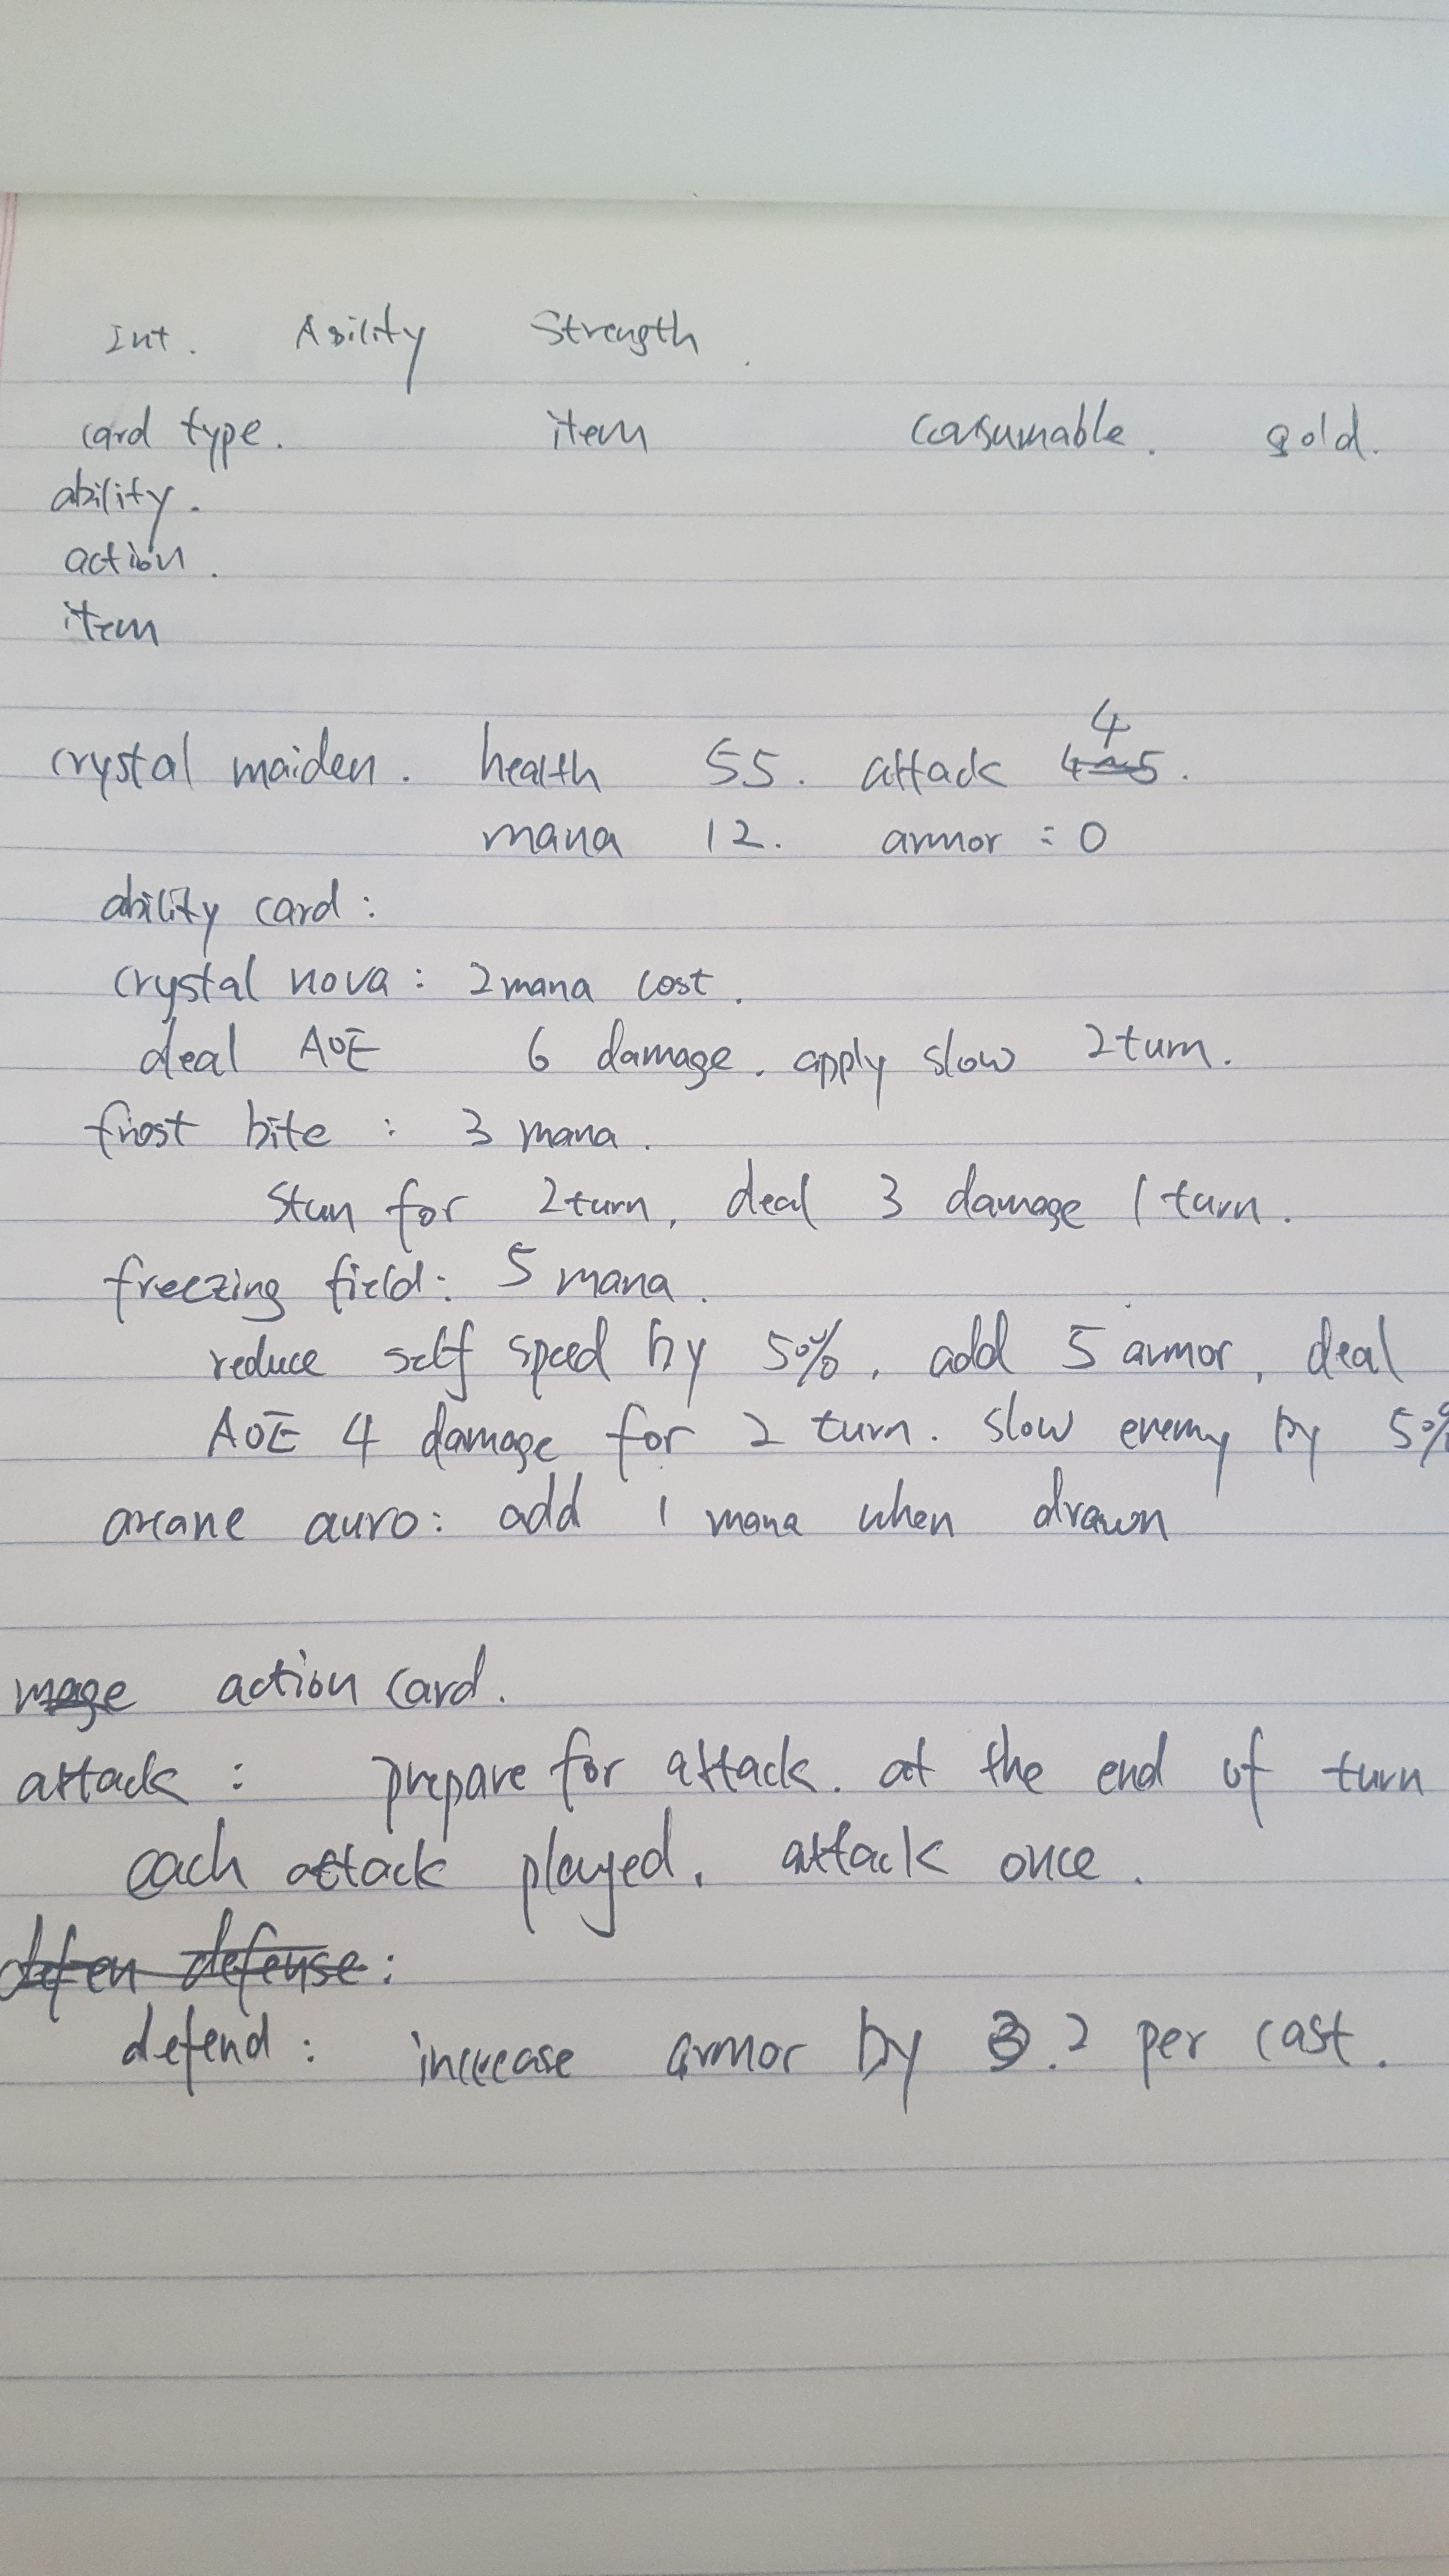 Int. Agility Strength.
card type. item consumable. gold.
ability.
action.
item
4
crystal maiden. health 55. attack 4~5.
mana 12. armor = 0
ability card:
crystal nova: 2 mana cost.
deal AOE 6 damage. apply slow 2 turn.
frost bite: 3 mana.
Stun for 2 turn, deal 3 damage / turn.
freezing field: 5 mana.
reduce self speed by 50%, add 5 armor, deal
AOE 4 damage for 2 turn. slow enemy by 50%
arcane auro: add 1 mana when drawn
mage action card.
attack: prepare for attack. at the end of turn
each attack played, attack once.
defen defense:
defend: increase armor by 3. 2 per cast.